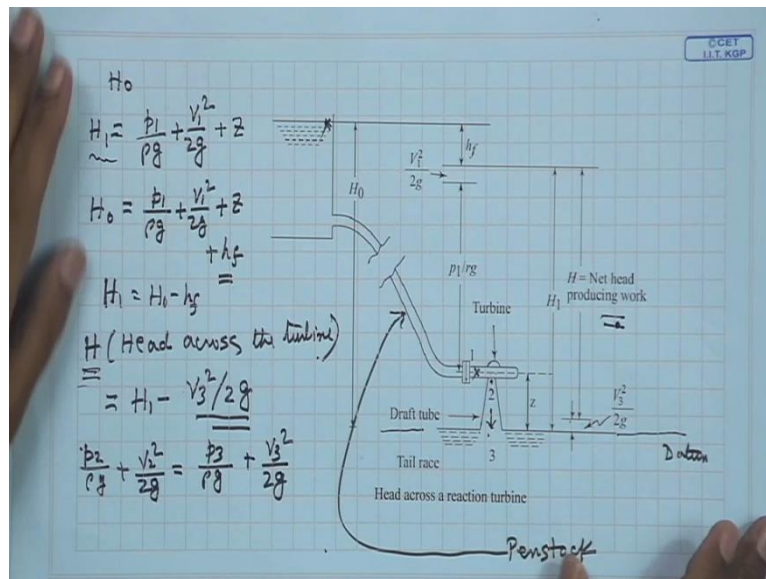 ©CET
I.I.T. KGP
H₀
H₁ = p₁/ρg + V₁²/2g + Z
H₀ = p₁/ρg + V₁²/2g + Z
+ hf
H₁ = H₀ - hf
H (Head across the turbine)
= H₁ - V₃²/2g
p₂/ρg + V₂²/2g = p₃/ρg + V₃²/2g
hf
V₁²/2g
H₀
p₁/rg
H₁
H = Net head
producing work
Turbine
1
2
z
V₃²/2g
Draft tube
3
Datum
Tail race
Head across a reaction turbine
Penstock